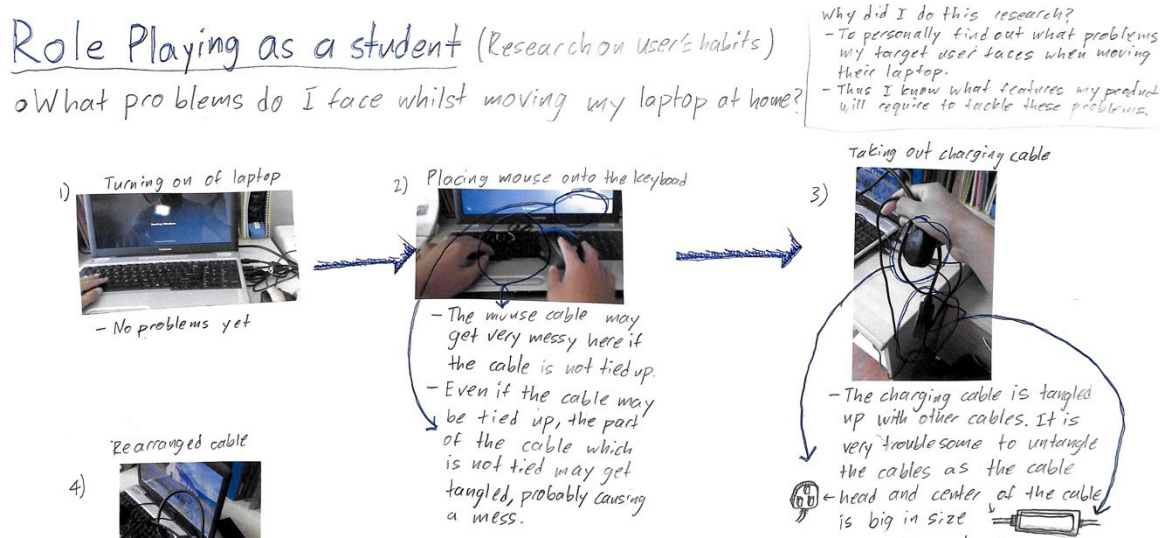 Role Playing as a student (Research on user's habits)
What problems do I face whilst moving my laptop at home?
Why did I do this research?
- To personally find out what problems
my target user faces when moving
their laptop.
- Thus I know what features my product
will require to tackle these problems.
1) Turning on of laptop
- No problems yet
2) Placing mouse onto the keyboad
- The mouse cable may
get very messy here if
the cable is not tied up.
- Even if the cable may
be tied up, the part
of the cable which
is not tied may get
tangled, probably causing
a mess.
3) Taking out charging cable
- The charging cable is tangled
up with other cables. It is
very troublesome to untangle
the cables as the cable
head and center of the cable
is big in size
4) Rearranged cable